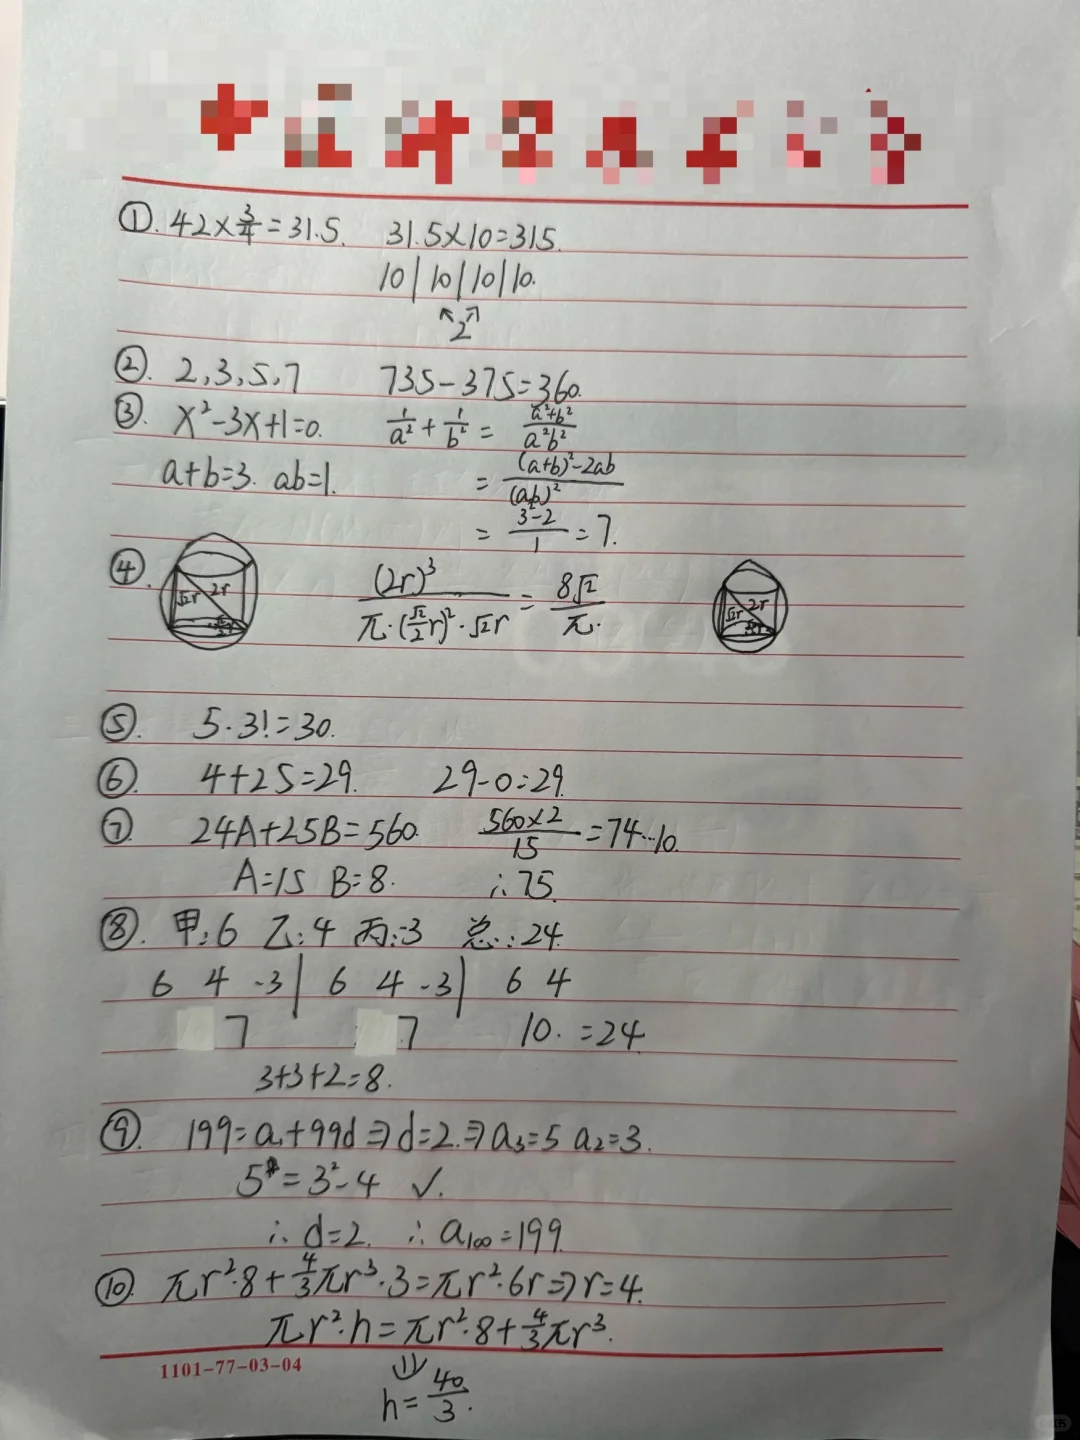 ①. 42×3/4=31.5. 31.5×10=315.
10|10|10|10.
↖2↗
②. 2,3,5,7 735-375=360.
③. x²-3x+1=0. 1/a²+1/b²=(a²+b²)/(a²b²)
a+b=3. ab=1. =((a+b)²-2ab)/(ab)²
=(3²-2)/1=7.
④. √2r 2r (2r)³/(π·(√2/2 r)²·√2r)=8√2/π. √2r 2r
⑤. 5·3!=30.
⑥. 4+25=29. 29-0=29.
⑦. 24A+25B=560. 560×2/15=74…10.
A=15 B=8. ∴75.
⑧. 甲:6 乙:4 丙:-3 总:24.
6 4 -3| 6 4 -3| 6 4
7 7 10. =24
3+3+2=8.
⑨. 199=a₁+99d⇒d=2.⇒a₃=5 a₂=3.
5=3²-4 ✓.
∴d=2. ∴a₁₀₀=199.
⑩. πr²·8+4/3πr³·3=πr²·6r⇒r=4.
πr²·h=πr²·8+4/3πr³.
1101-77-03-04
⇓
h=40/3.